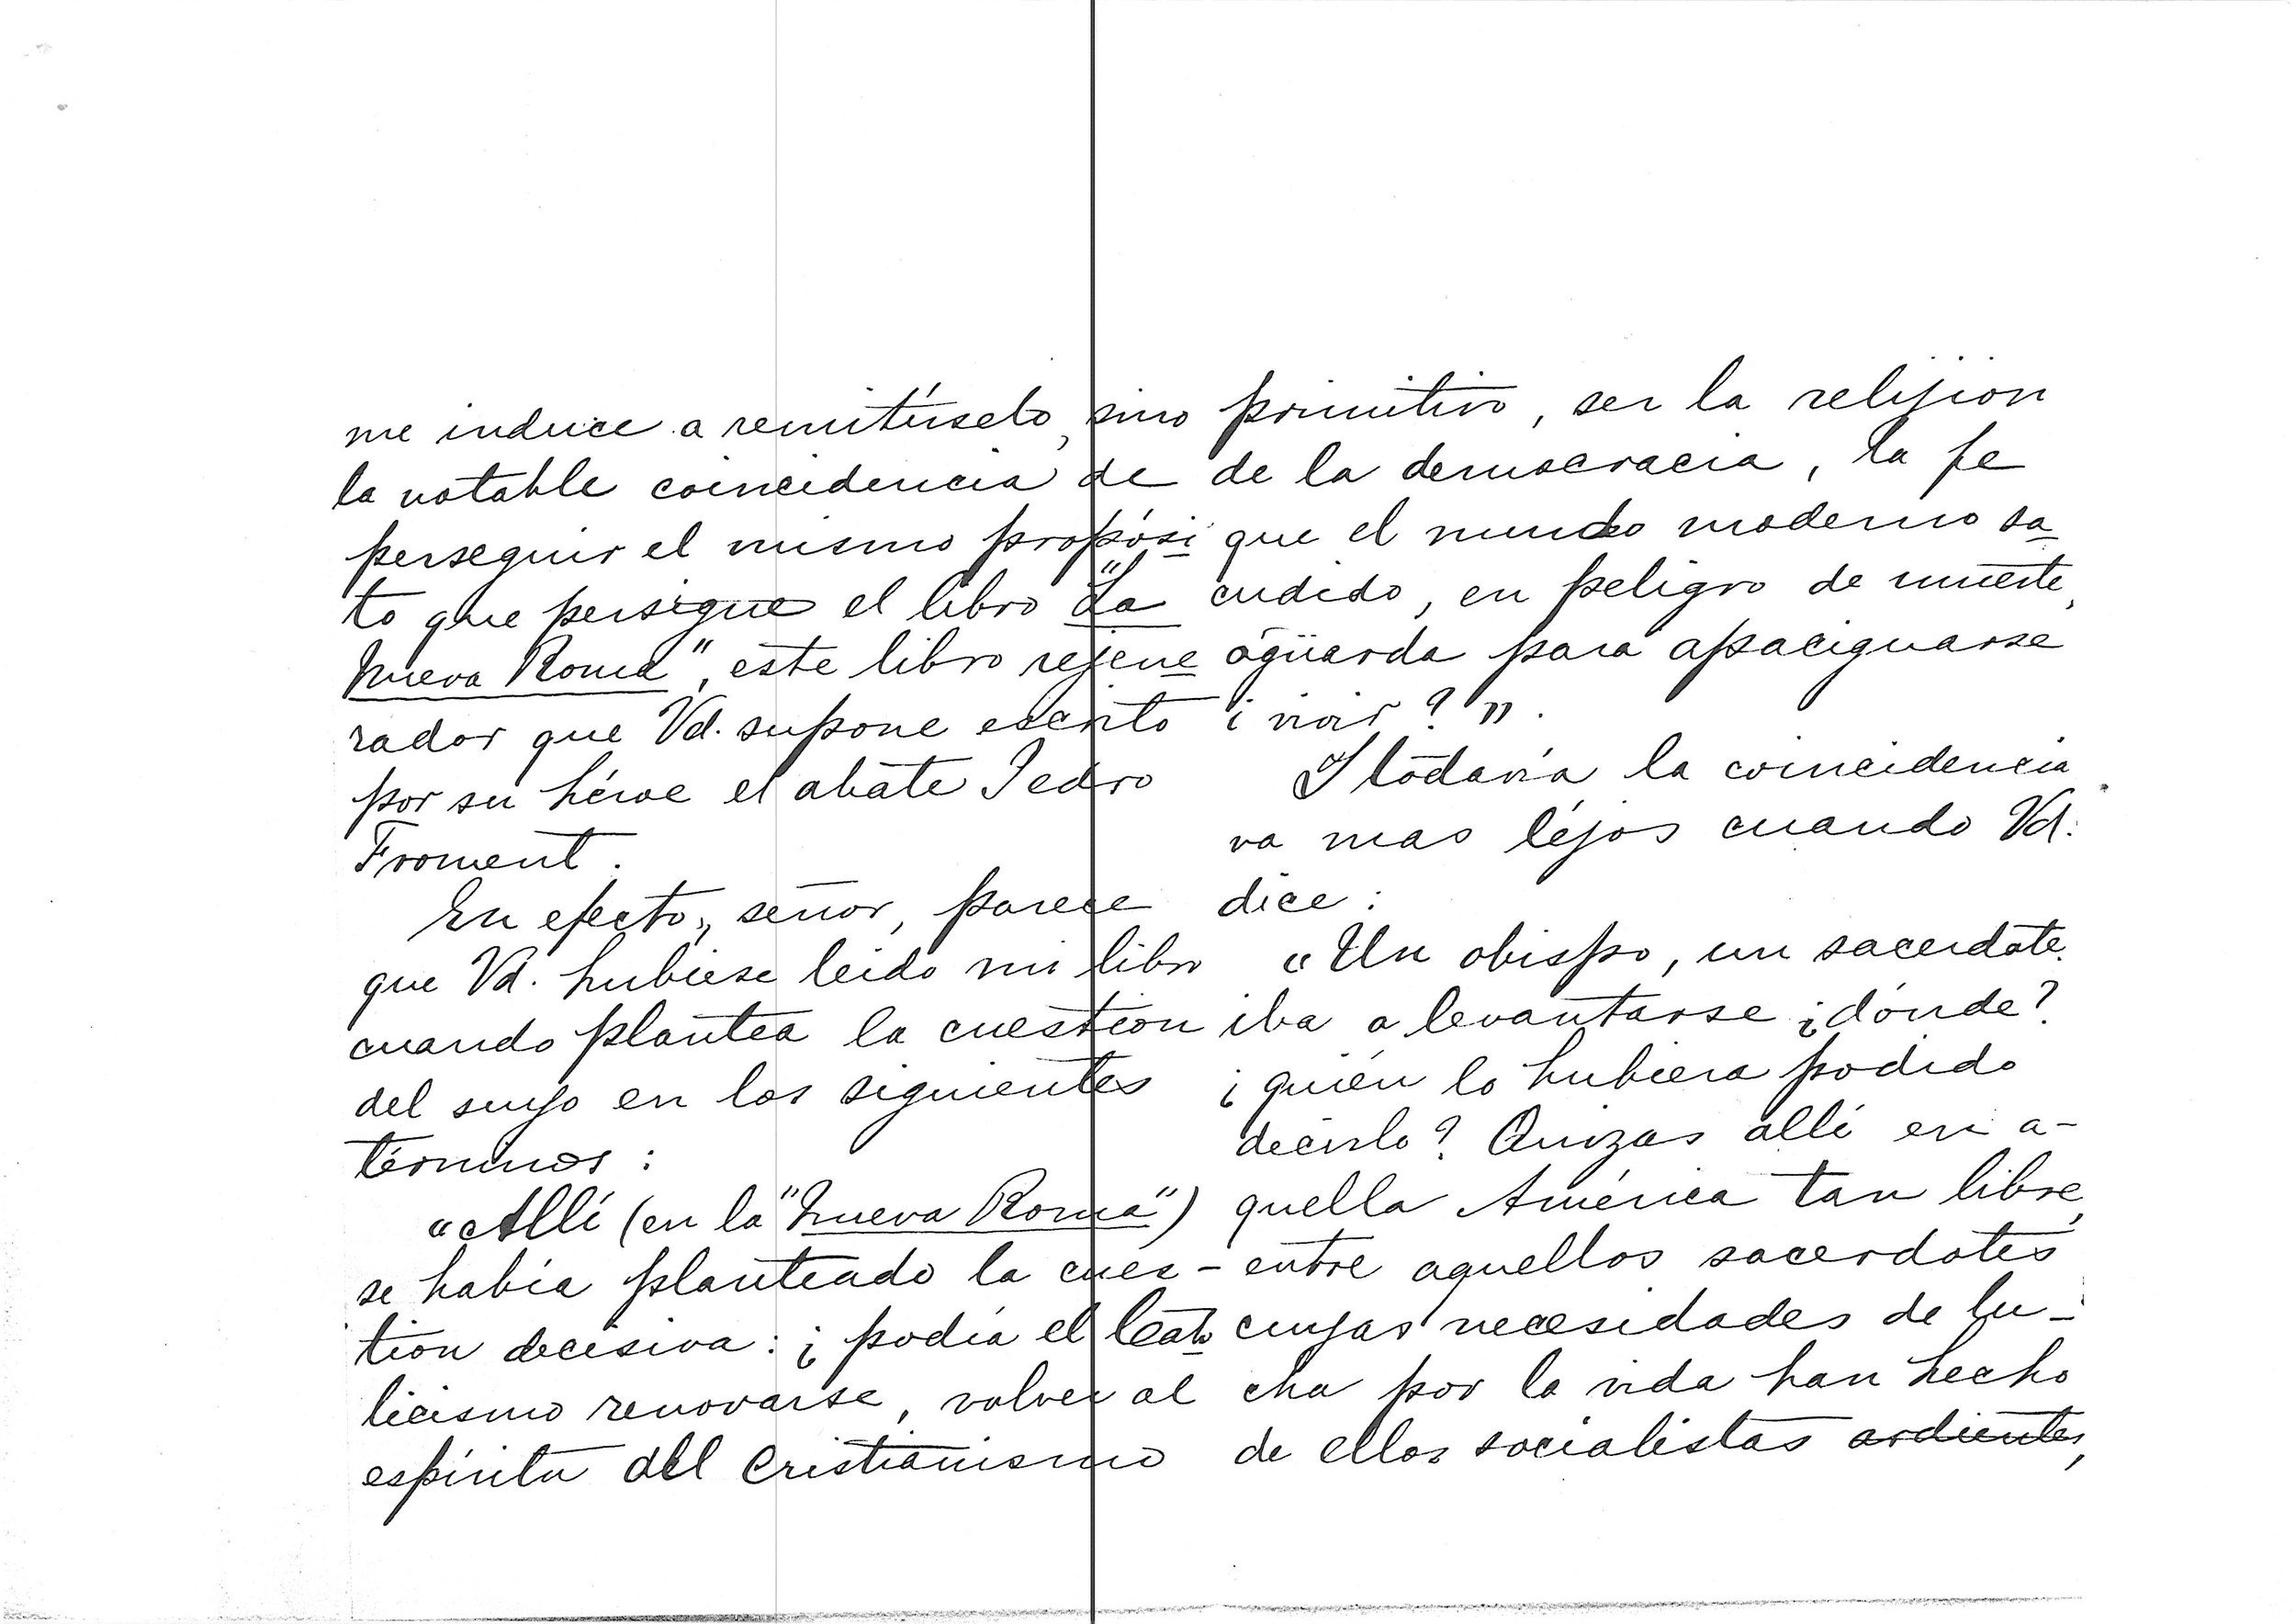 me induce a remitírselo, sino
la notable coincidencia de
perseguir el mismo propósi
to que persigue el libro "La
Nueva Roma", este libro rejene
rador que Vd. supone escrito
por su héroe el abate Pedro
Froment.
En efecto, señor, parece
que Vd. hubiese leido mi libro
cuando plantea la cuestion
del suyo en los siguientes
términos:
«Allí (en la "Nueva Roma")
se habia planteado la cues-
tion decisiva: ¿podía el Cato
licismo renovarse, volver al
espíritu del Cristianismo
primitivo, ser la relijion
de la democracia, la fe
que el mundo moderno sa
cudido, en peligro de muerte,
aguarda para apaciguarse
i vivir?».
I todavía la coincidencia
va mas léjos cuando Vd.
dice:
«Un obispo, un sacerdote
iba a levantarse ¿dónde?
¿quién lo hubiera podido
decirlo? Quizas allí en a-
quella América tan libre,
entre aquellos sacerdotes
cuyas necesidades de lu-
cha por la vida han hecho
de ellos socialistas ardientes,